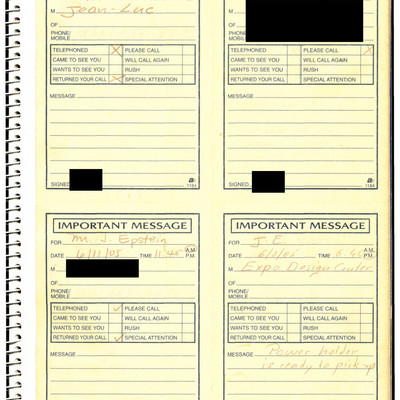 M Jean-Luc
OF
PHONE/
MOBILE
TELEPHONED X PLEASE CALL
CAME TO SEE YOU WILL CALL AGAIN
WANTS TO SEE YOU RUSH
RETURNED YOUR CALL X SPECIAL ATTENTION
MESSAGE
SIGNED
1184
M
OF
PHONE/
MOBILE
TELEPHONED PLEASE CALL X
CAME TO SEE YOU WILL CALL AGAIN
WANTS TO SEE YOU RUSH
RETURNED YOUR CALL SPECIAL ATTENTION
MESSAGE
SIGNED
1184
IMPORTANT MESSAGE
FOR Mr. J. Epstein
DATE 6/11/05 TIME 11:45 A.M.
P.M.
M
OF
PHONE/
MOBILE
TELEPHONED ✓ PLEASE CALL
CAME TO SEE YOU WILL CALL AGAIN
WANTS TO SEE YOU RUSH
RETURNED YOUR CALL ✓ SPECIAL ATTENTION
MESSAGE
IMPORTANT MESSAGE
FOR J. E.
DATE TIME A.M.
P.M.
M Expo Design Center
OF
PHONE/
MOBILE
TELEPHONED PLEASE CALL
CAME TO SEE YOU WILL CALL AGAIN
WANTS TO SEE YOU RUSH
RETURNED YOUR CALL SPECIAL ATTENTION
MESSAGE Power holder
is ready to pick up